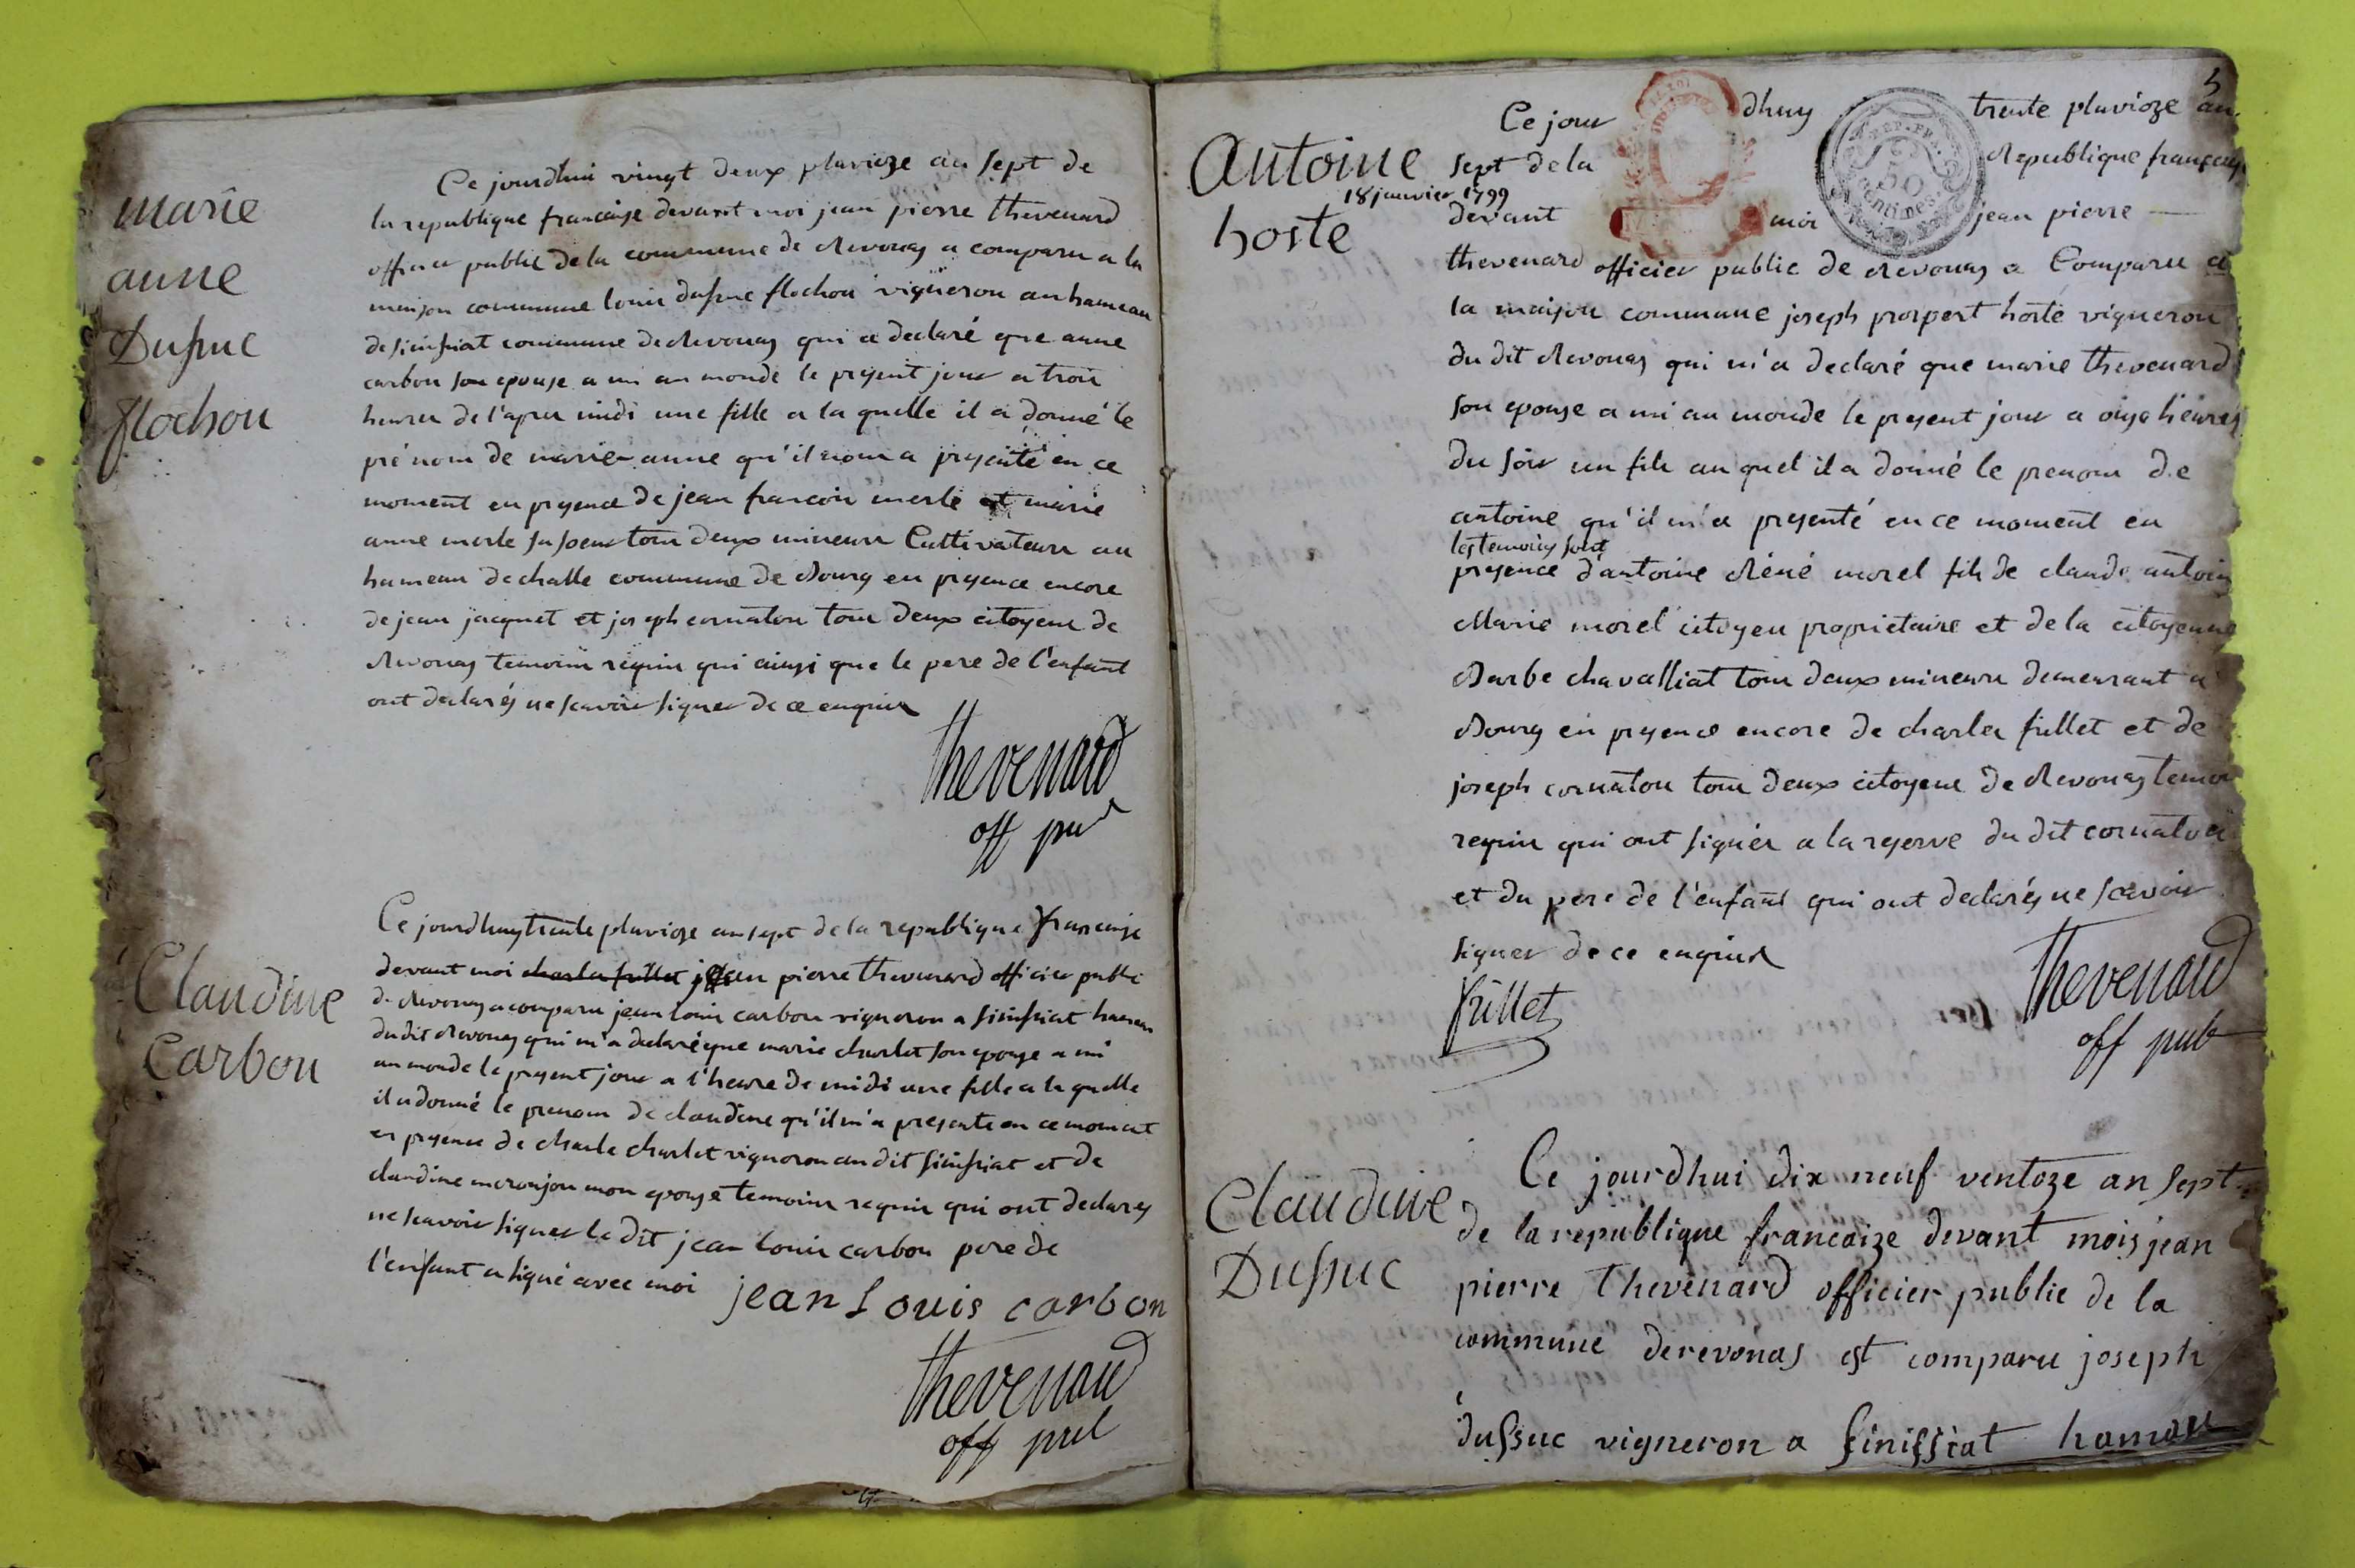 marie
anne
Dufsuc
flochon
Ce jourdhui vingt deux pluvioze an sept de
la republique francaise devant moi jean pierre thevenard
officier public de la commune de Revonas a comparu a la
maison commune louis dufsuc flochon vigneron au hameau
de sinifsiat commune de Revonas qui a declaré que anne
carbon son epouse a mi au monde le present jour a trois
heures de l'apres midi une fille a la quelle il a donné le
pré nom de marie-anne qu'il nous a presenté en ce
moment en presence de jean francois merle et marie
anne merle sa soeur tous deux mineurs Cultivateurs au
hameau de challe commune de Bourg en presence encore
de jean jacquet et joseph cornaton tous deux citoyens de
Revonas temoins requis qui ainsi que le pere de l'enfant
ont declarés ne scavoir signer de ce enquis
thevenard
off pu
Claudine
Carbon
Ce jourdhuy trente pluvioze an sept de la republique francaise
devant moi charles fillet jean pierre thevenard officier publi
de Revonas a comparu jean louis carbon vigneron a sinifsiat hameau
du dit Revonas qui m'a declaré que marie charlet son epouse a mi
au monde le present jour a l'heure de midi une fille a la quelle
il a donné le prenom de claudine qu'il m'a presenté en ce moment
en presence de charle charlet vigneron au dit sinifsiat et de
claudine moronjon mon epouse temoins requis qui ont declarés
ne scavoir signer le dit jean louis carbon pere de
l'enfant a signé avec moi jean Louis carbon
thevenard
off pub
5
Antoine
18 janvier 1799
hoste
Ce jour dhuy trente pluvioze an
sept de la Republique francaise
REP. FR.
50
centimes
devant moi jean pierre
thevenard officier public de Revonas a Comparu a
la maison commune joseph prospert hoste vigneron
du dit Revonas qui m'a declaré que marie thevenard
son epouse a mi au monde le present jour a onze heures
du soir un fils au quel il a donné le prenom de
antoine qu'il m'a presenté en ce moment en
les temoins sont
presence d'antoine Réné morel fils de claude antoine
Marie morel citoyen proprietaire et de la citoyenne
Barbe chavalliat tous deux mineurs demeurant a
Bourg en presence encore de charles fillet et de
joseph cornaton tous deux citoyens de Revonas temoi
requis qui ont signés a la reserve du dit cornaton
et du pere de l'enfant qui ont declarés ne scavoir
signer de ce enquis
fillet
thevenard
off pub
Claudine
Dufsuc
Ce jourdhui dix neuf ventoze an sept
de la republique francaize devant mois jean
pierre Thevenard officier public de la
commune de revonas est comparu joseph
dufsuc vigneron a sinifsiat hamau